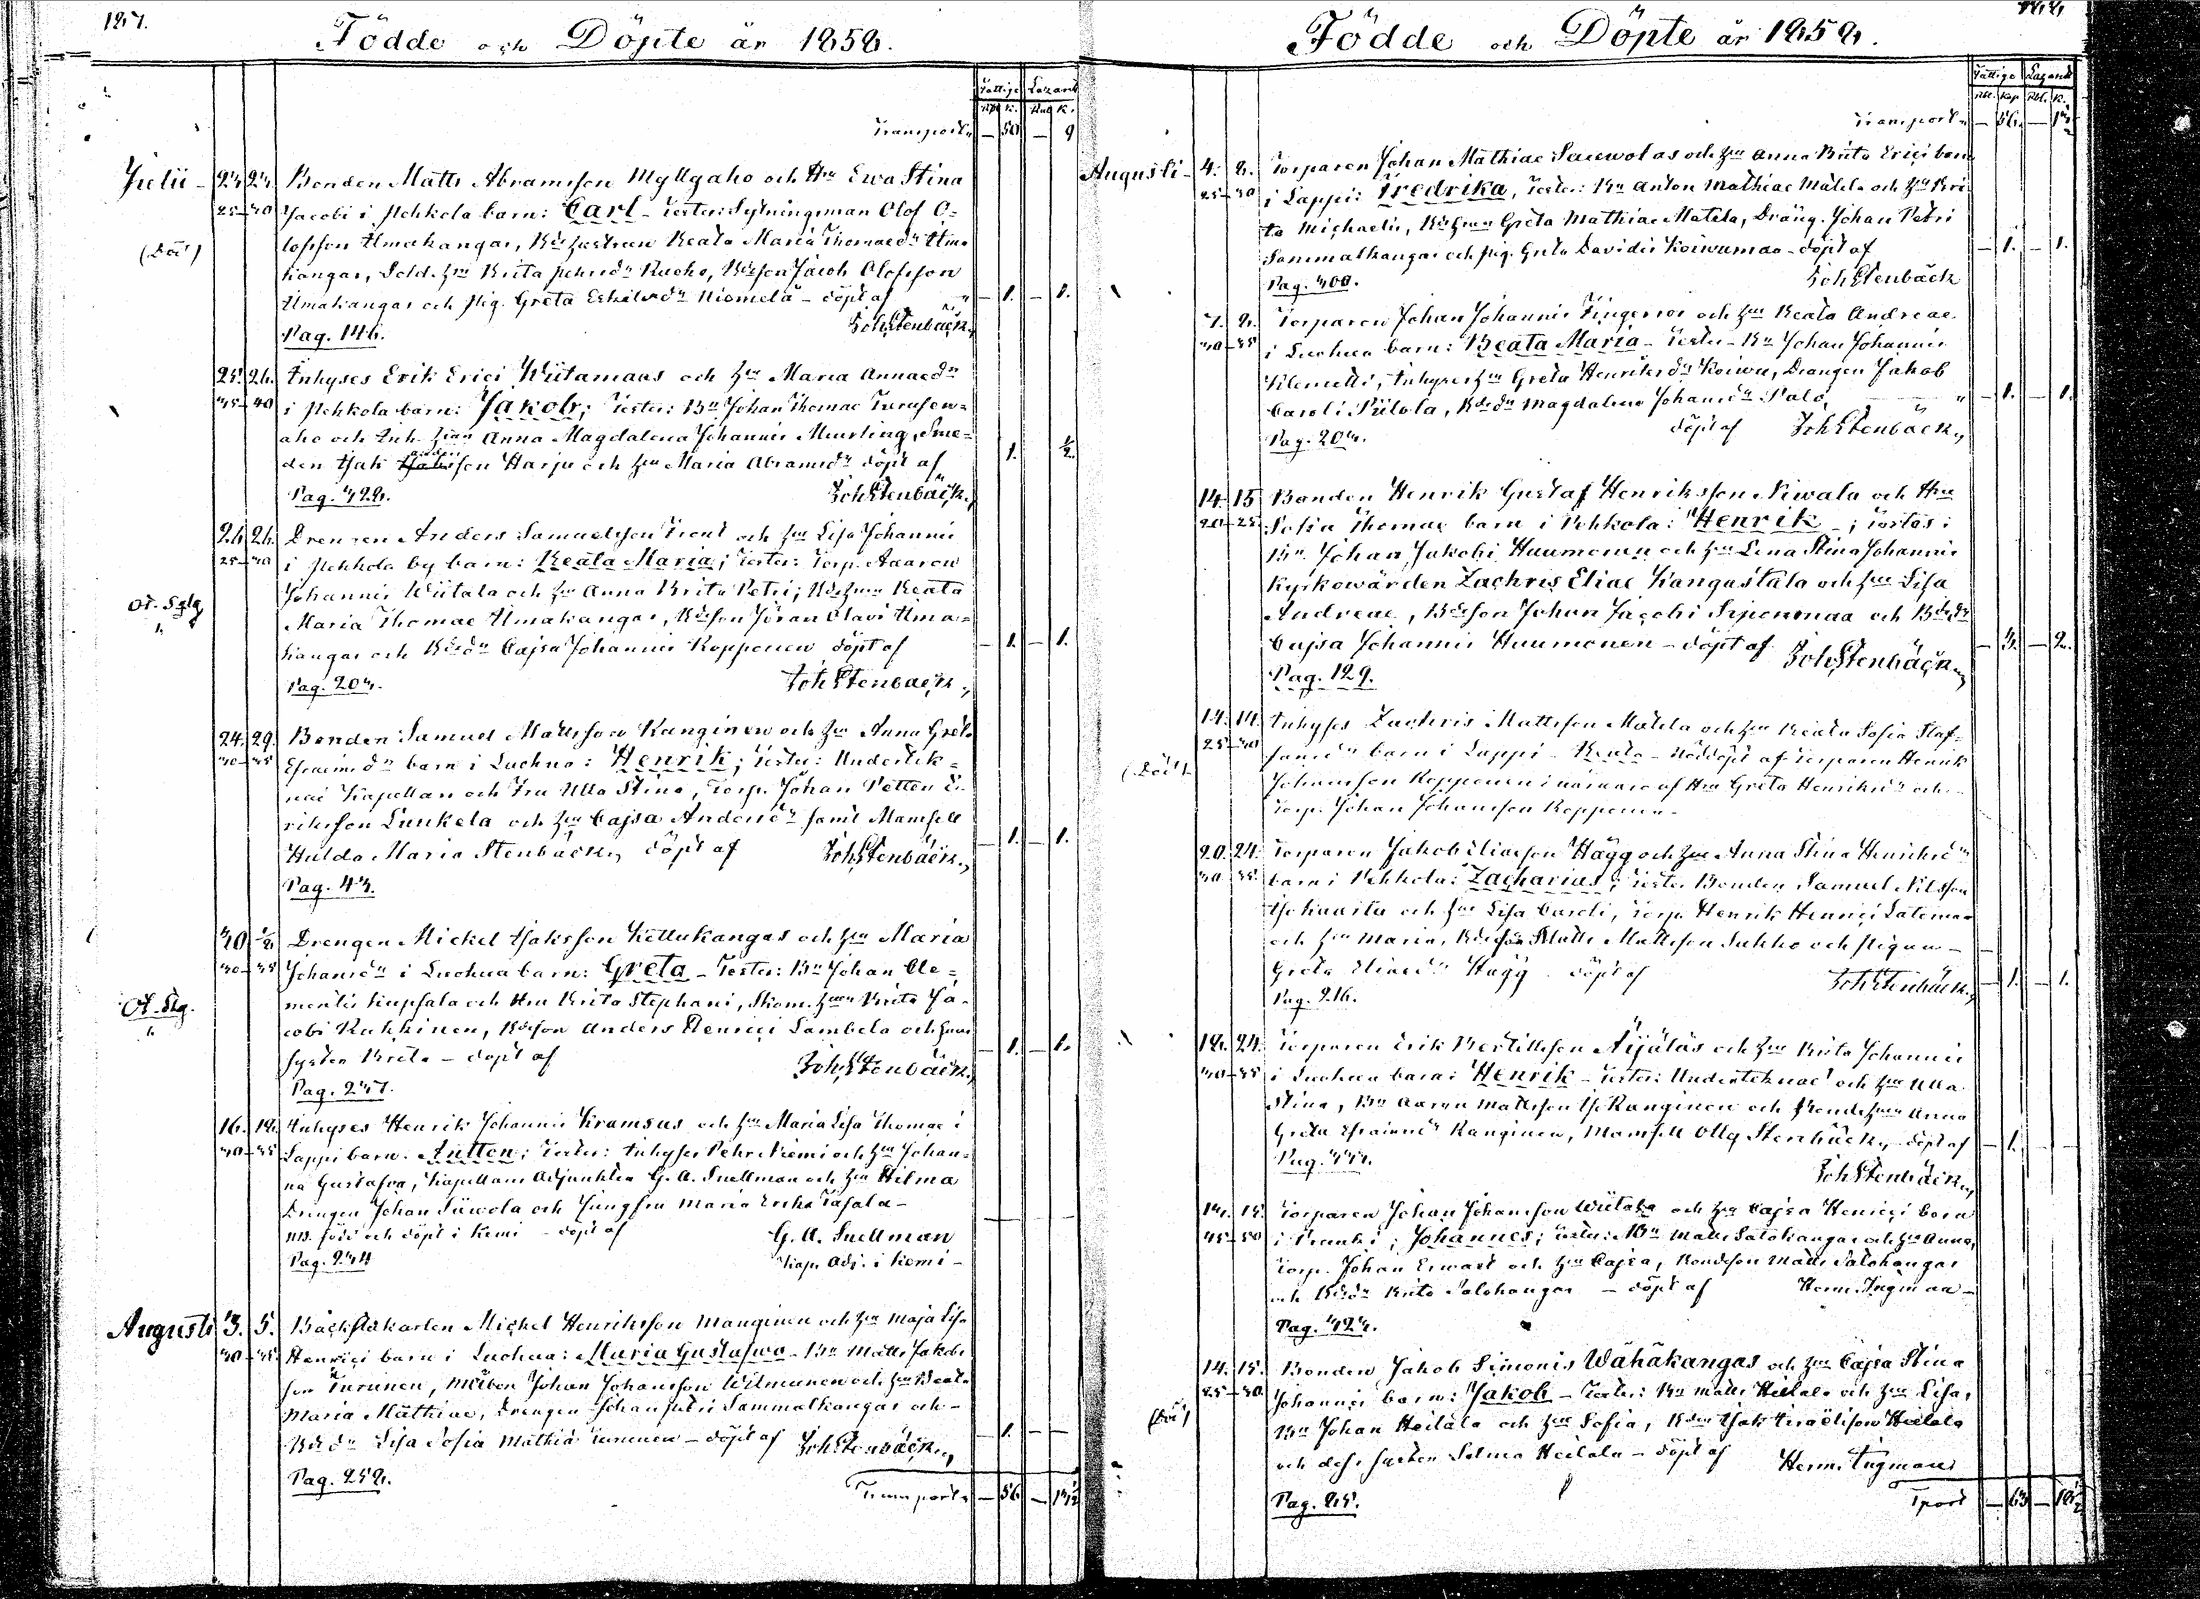 187.
Födde och Döpte år 1858.
Fattige Lazarett
Rbl K. Rbl K.
Transport — 50 — 9
Julii 23 23. Bonden Matts Abramsson Myllyaho och Hru Ewa Stina
25-30 Jacobi i Pehkola barn: Carl - Testes: Sytningsman Olof O=
lofsson Umakangas, Bdehustrun Beata Maria Thomaedr Uma
(Död) kangas, Sold. hru Brita Pehrsdr Rucko, Bdeson Jacob Olofsson
Umakangas och pig. Greta Eskilsdr Niemelä - döpt af — 1. — 1.
Pag. 146. JohStenbäck,
25. 26. Inhyses Erik Erici Wiitamaas och hru Maria Annaedr
35-40 i Pehkola barn: Jakob; Testes: Bn Johan Thomae Turusen=
aho och Inh. hrun Anna Magdalena Johannis Muurling, Sme=
den Isak son Harju och hru Maria Abramsdr döpt af 1. ½
Pag. 428. JohStenbäck,
26. 26. Drengen Anders Samuelsson Front och hru Lisa Johannis
25-30 i Pehkola by barn: Beata Maria; Testes: Torp. Aaaron
Johannis Wiitala och hru Anna Brita Petri; Bdehrun Beata
Maria Thomae Umakangas, Bdeson Jöran Olavi Uma=
kangas och Bdedr Cajsa Johannis Kopponen döpt af — 1. — 1.
Pag. 203. JohStenbäck,
24. 29. Bonden Samuel Mattsson Kanginen och hru Anna Greta
30-35 Efraimsdr barn i Luohua: Henrik; Testes: Underteck=
nad Kapellan och Fru Ulla Stina, Torp. Johan Petter E=
riksson Lunkela och hru Cajsa Andersdr samt Mamsell
Hulda Maria Stenbäck, döpt af — 1. — 1.
Pag. 43. JohStenbäck,
30 1/8 Drengen Mickel Isaksson Kettukangas och hru Maria
30-35 Johansdr i Luohua barn: Greta - Testes: Bn Johan Cle=
mentis Luspala och Hru Brita Stephani, Skom. hrun Brita Ja=
cobi Rahkinen, Bdeson Anders Henrici Lambela och hans
syster Brita - döpt af — 1. — 1.
Pag. 237. JohStenbäck,
16. 18. Inhyses Henrik Johannis Kramsus och hru Maria Lisa Thomae i
30-35 Lappi barn: Antton; Testes: Inhyses Pehr Niemi och hru Johan=
na Gustafva, Kapellans Adjunkten G. A. Snellman och hru Hilma
Drengen Johan Siiwola och Jungfru Maria Erika Tasala -
NB. född och döpt i Kemi - döpt af G. A. Snellman
Pag. 234 Kap. Adj. i Kemi -
Augusti 3. 5. Backstukarlen Mickel Henriksson Manginen och hru Maja Lisa
30-35. Henrici barn i Luohua: Maria Gustafwa - Bn Matts Jakobs
son Turunen, Målaren Johan Johansson Wilmunen och hru Beata
Maria Mathiae, Drengen Johan Petri Sammalkangas och -
Bdedr Lisa Sofia Mathiä Turunen - döpt af JohStenbäck, — 1. — —
Pag. 258.
Transport — 56 — 13½
188.
Födde och Döpte år 1858.
Fattige Lazarett
Rbl. Kop Rbl. K.
Transport — 56. — 13½
Augusti 4. 8. Torparen Johan Mathiae Sauwolas och hru Anna Brita Erici barn
25-30 i Lappi: Fredrika, Testes: Bn Anton Mathiae Mälila och hru Bri
ta Michaelis, Bdehrun Greta Mathiae Matila, Dräng. Johan Petri
Sammalkangas och pig. Greta Davidis Koiwumaa - döpt af — 1. — 1.
Pag. 300. JohStenbäck
7. 8. Torparen Johan Johannis Tingerroi och hru Beata Andreae
30-35 i Luohua barn: Beata Maria - Testes - Bn Johan Johannis
Klemetti, Inhyses hru Greta Henriksdr Koiwu, Drengen Jakob
Caroli Piilola, Bdedr Magdalena Johansdr Palo, — 1. — 1.
Pag. 203. döpt af JohStenbäck,
14. 15 Bonden Henrik Gustaf Henriksson Niwala och Hru
20-25 Sofia Thomae barn i Pehkola: Henrik -; Testes:
Bn. Johan Jakobi Huumonen och hru Lena Stina Johannis
Kyrkowärden Zachris Eliae Kangastala och hru Lisa
Andreae, Bdeson Johan Jacobi Seponmaa och Bdedr
Cajsa Johannis Huumonen - döpt af JohStenbäck, — 3. — 2.
Pag. 129.
14. 14. Inhyses Zachris Mattsson Matila och hru Beata Sofia Staf=
25-30 fansdr barn i Lappi - Beata - Nöddöpt af Torparen Henrik
(Död) Johansson Kopponen i närvaro af Hru Greta Henriksdr och
Torp. Johan Johansson Kopponen -
20. 24. Torparen Jakob Eliasson Hägg och hru Anna Stina Henriksdr
30-35. barn i Pehkola: Zacharias; Testes Bonden Samuel Nilsson
Isokuusta och hru Lisa Caroli, Torp. Henrik Henrici Latomaa
och hru Maria, Bdeson Matts Mattsson Sukko och pigan -
Greta Eliaedr Hägg - döpt af JohStenbäck, — 1. — 1.
Pag. 216.
18. 24. Torparen Erik Bertillsson Äijäläs och hru Brita Johannis
30-35 i Luohua barn: Henrik - Testes: Undertecknad och hru Ulla
Stina, Bn Aaron Mattsson Iso Kanginen och Bondehrun Anna
Greta Efraimsdr Kanginen, Mamsell Olly Stenbäck, - döpt af — 1.
Pag. 44. JohStenbäck,
14. 15. Torparen Johan Johansson Wiitala och hru Cajsa Henrici barn
45-50 i Frankki; Johannes; Testes: Bn Matts Salokangas och hru Anna,
Torp. Johan Erwast och hru Cajsa, Bondeson Matts Salokangas
och Bdedr Brita Salokangas - döpt af Herm. Ingman -
Pag. 424.
14. 15. Bonden Jakob Simonis Wähäkangas och hru Cajsa Stina
25-30 Johannis barn: Jakob - Testes: Bn Matts Heilala och hru Lisa,
(Död) Bn Johan Heilala och hru Sofia, Bden Isak Israëlsson Heilala
och dess syster Selma Heilala - döpt af Herm. Ingman
Pag. 25.
Tport — 63 — 18½